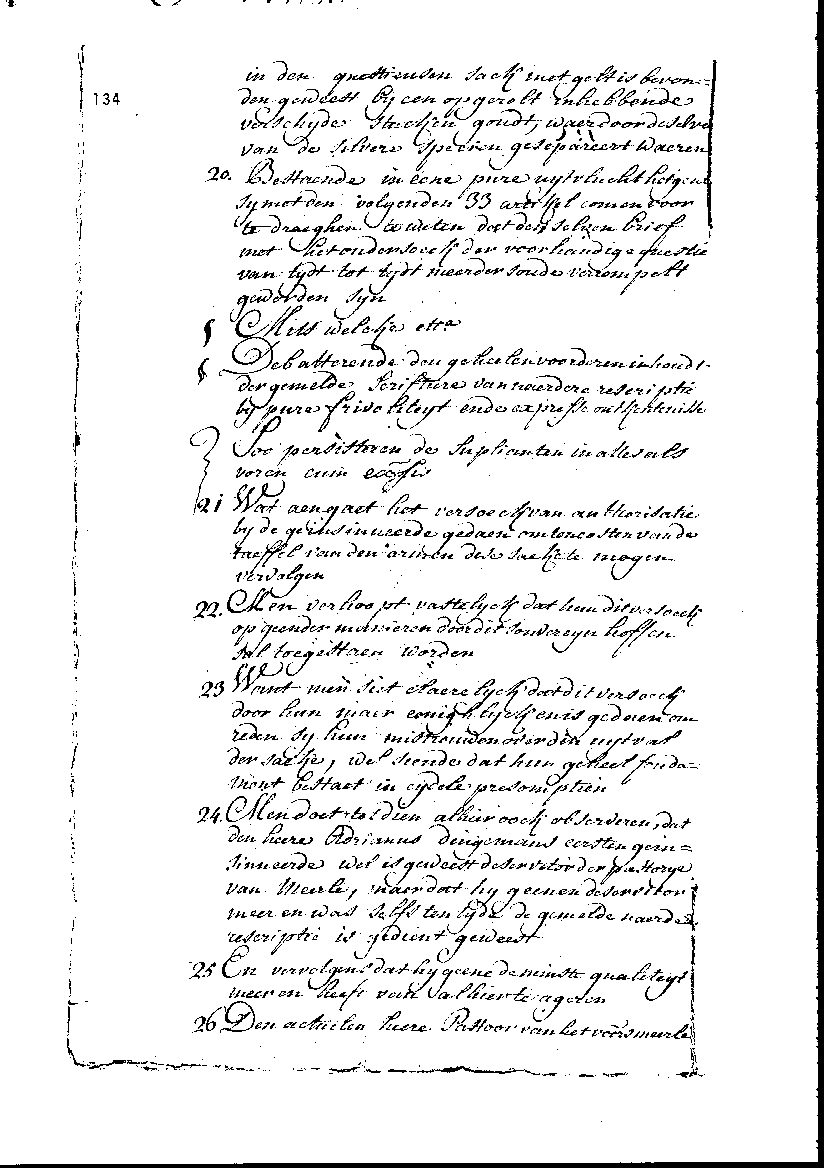 134
in den questieusen sack met gelt is bevon=
den geweest by een opgerolt inhebbende
verscheyde stucken goudt, waer door deselve
van de silvere specien gesepareert waeren
20. Bestaende in eene pure uytvlucht hetgene
sy met den volgenden 33 articel comen voor
te draeghen te weten dat den selven brief
met het ondersoeck der voorhandige questie
van tydt tot tydt meerder soude verrompelt
geworden syn
§ Mits welcke etta
§ Debatterende den geheelen voorderen inhoudt
der gemelde scrifture van naerdere rescriptie
by pure frivoliteyt ende expresse ontkentenisse
Soo persisteren de Suplianten in alles als
voren cum
21 Wat aengaet het versoeck van authorisatie
by de geinsinueerde gedaen om ten coste van de
taeffel van den armen dese saecke te mogen
vervolgen
22. Men verhoopt vastelyck dat hun dit versoeck
op geender manieren door dit souvereyn hoffen
sal toegestaen worden
23 Want men siet claerelyck dat dit versoeck
door hun maer eenighlyck en is gedaen om
reden sy hun mistrouwen over den uytval
der saecke, wel siende dat hun geheel funda=
ment bestaet in eydele presomptien
24. Men doet tot dien alhier oock observeren, dat
den heere Adrianus dingemans eersten gein=
sinueerde wel is geweest deservitor der pastorye
van Meerle, maer dat hy geenen deservitor
meer en was selfs ten tyde de gemelde naerdere
rescriptie is gedient geweest
25 En vervolgens dat hy geene de minste qualiteyt
meer en heeft van alhier te ageren
26 Den actuelen heere Pastoor van het voors meerle